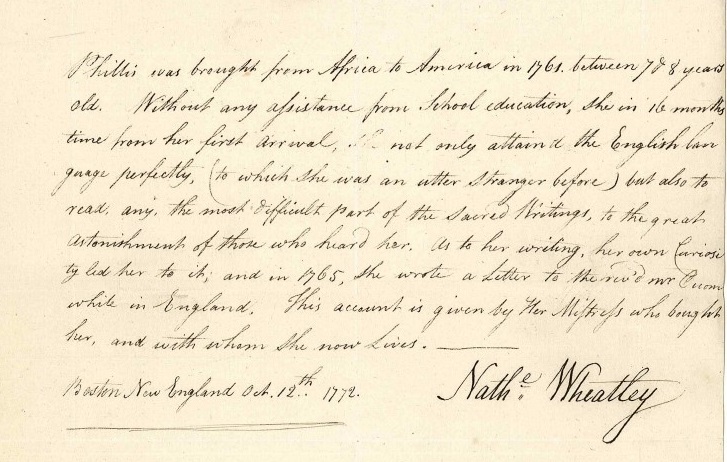 Phillis was brought from Africa to America in 1761. between 7 & 8 years
old. Without any assistance from School education, she in 16 months
time from her first arrival, not only attain'd the English lan
guage perfectly, (to which she was an utter Stranger before) but also to
read, any, the most difficult part of the Sacred Writings, to the great
astonishment of those who heard her. As to her writing, her own Curiosi
ty led her to it; and in 1765, she wrote a Letter to the rev'd mr Occom
while in England. This account is given by Her Mistress who bought
her, and with whom she now Lives.
Boston New England Oct. 12th 1772.
Nathe. Wheatley